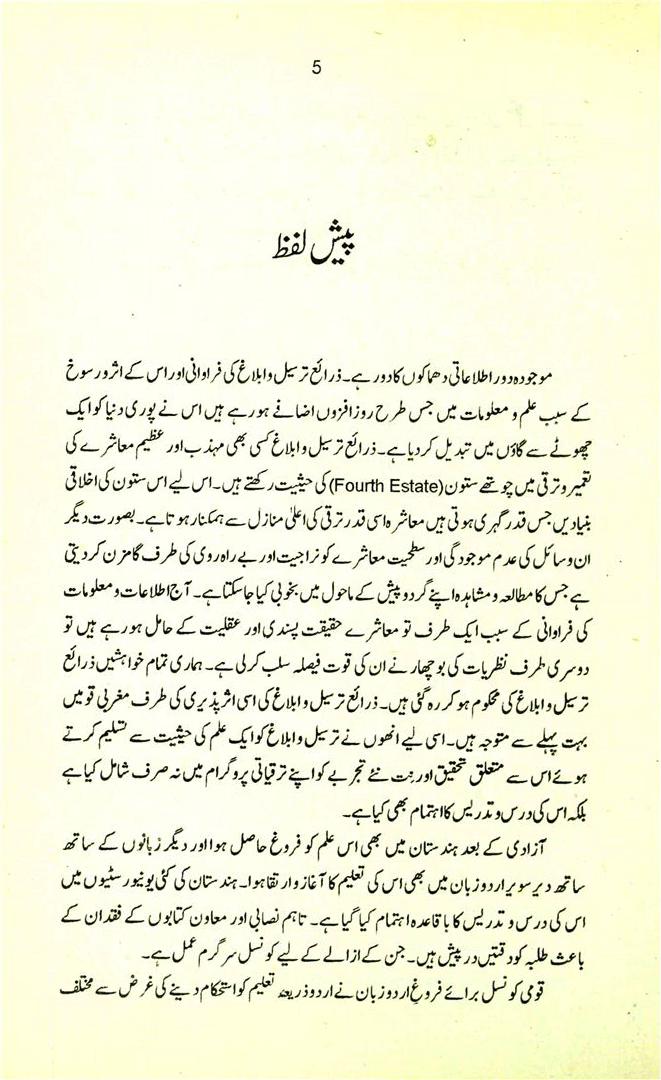 5
پیش لفظ
موجودہ دور اطلاعاتی دھماکوں کا دور ہے۔ ذرائع ترسیل و ابلاغ کی فراوانی اور اس کے اثر و رسوخ
کے سبب علم و معلومات میں جس طرح روز افزوں اضافے ہو رہے ہیں اس نے پوری دنیا کو ایک
چھوٹے سے گاؤں میں تبدیل کر دیا ہے۔ ذرائع ترسیل و ابلاغ کسی بھی مہذب اور عظیم معاشرے کی
تعمیر و ترقی میں چوتھے ستون (Fourth Estate) کی حیثیت رکھتے ہیں۔ اس لیے اس ستون کی اخلاقی
بنیادیں جس قدر گہری ہوتی ہیں معاشرہ اسی قدر ترقی کی اعلیٰ منازل سے ہمکنار ہوتا ہے۔ بصورت دیگر
ان وسائل کی عدم موجودگی اور سطحیت معاشرے کو نراجیت اور بے راہ روی کی طرف گامزن کر دیتی
ہے جس کا مطالعہ و مشاہدہ اپنے گرد و پیش کے ماحول میں بخوبی کیا جا سکتا ہے۔ آج اطلاعات و معلومات
کی فراوانی کے سبب ایک طرف تو معاشرے حقیقت پسندی اور عقلیت کے حامل ہو رہے ہیں تو
دوسری طرف نظریات کی بوچھار نے ان کی قوت فیصلہ سلب کر لی ہے۔ ہماری تمام خواہشیں ذرائع
ترسیل و ابلاغ کی محکوم ہو کر رہ گئی ہیں۔ ذرائع ترسیل و ابلاغ کی اسی اثر پذیری کی طرف مغربی قومیں
بہت پہلے سے متوجہ ہیں۔ اسی لیے انھوں نے ترسیل و ابلاغ کو ایک علم کی حیثیت سے تسلیم کرتے
ہوئے اس سے متعلق تحقیق اور نت نئے تجربے کو اپنے ترقیاتی پروگرام میں نہ صرف شامل کیا ہے
بلکہ اس کی درس و تدریس کا اہتمام بھی کیا ہے۔
آزادی کے بعد ہندستان میں بھی اس علم کو فروغ حاصل ہوا اور دیگر زبانوں کے ساتھ
ساتھ دیر سویر اردو زبان میں بھی اس کی تعلیم کا آغاز و ارتقا ہوا۔ ہندستان کی کئی یونیورسٹیوں میں
اس کی درس و تدریس کا باقاعدہ اہتمام کیا گیا ہے۔ تاہم نصابی اور معاون کتابوں کے فقدان کے
باعث طلبہ کو دقتیں درپیش ہیں۔ جن کے ازالے کے لیے کونسل سرگرم عمل ہے۔
قومی کونسل برائے فروغِ اردو زبان نے اردو ذریعۂ تعلیم کو استحکام دینے کی غرض سے مختلف